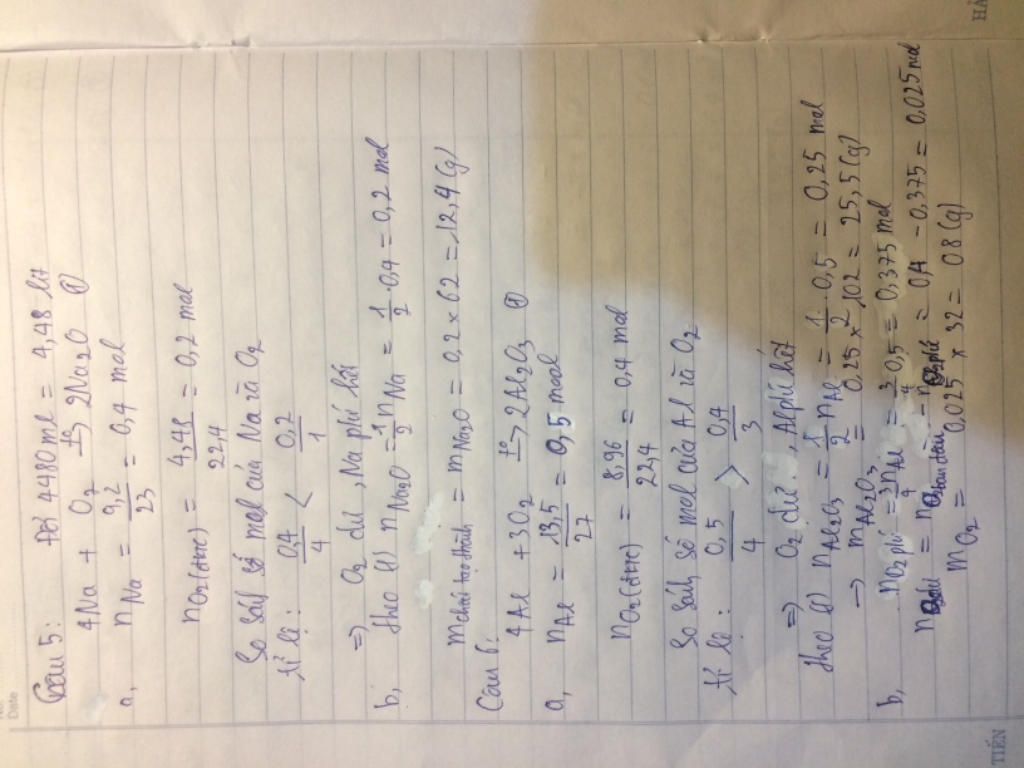 Câu 5: Đổi 4480 ml = 4,48 lít
4Na + O2 -tº-> 2Na2O (1)
a, nNa = 9,2/23 = 0,4 mol
nO2(đktc) = 4,48/22,4 = 0,2 mol
So sánh số mol của Na và O2
tỉ lệ: 0,4/4 < 0,2/1
=> O2 dư, Na phứ hết
b, theo (1) nNa2O = 1/2 nNa = 1/2 . 0,4 = 0,2 mol
mchất tạo thành = mNa2O = 0,2 × 62 = 12,4 (g)
Câu 6:
4Al + 3O2 -tº-> 2Al2O3 (1)
a, nAl = 13,5/27 = 0,5 mol
nO2(đktc) = 8,96/22,4 = 0,4 mol
So sánh số mol của Al và O2
tỉ lệ: 0,5/4 > 0,4/3
=> O2 dư, Al phứ hết
theo (1) nAl2O3 = 1/2 nAl = 1/2 . 0,5 = 0,25 mol
-> mAl2O3 = 0,25 × 102 = 25,5 (g)
b, nO2 phứ = 3/4 nAl = 3/4 . 0,5 = 0,375 mol
= 0,4 - 0,375 = 0,025 mol
mO2 = 0,025 × 32 = 0,8 (g)
No.
Date
TIẾN